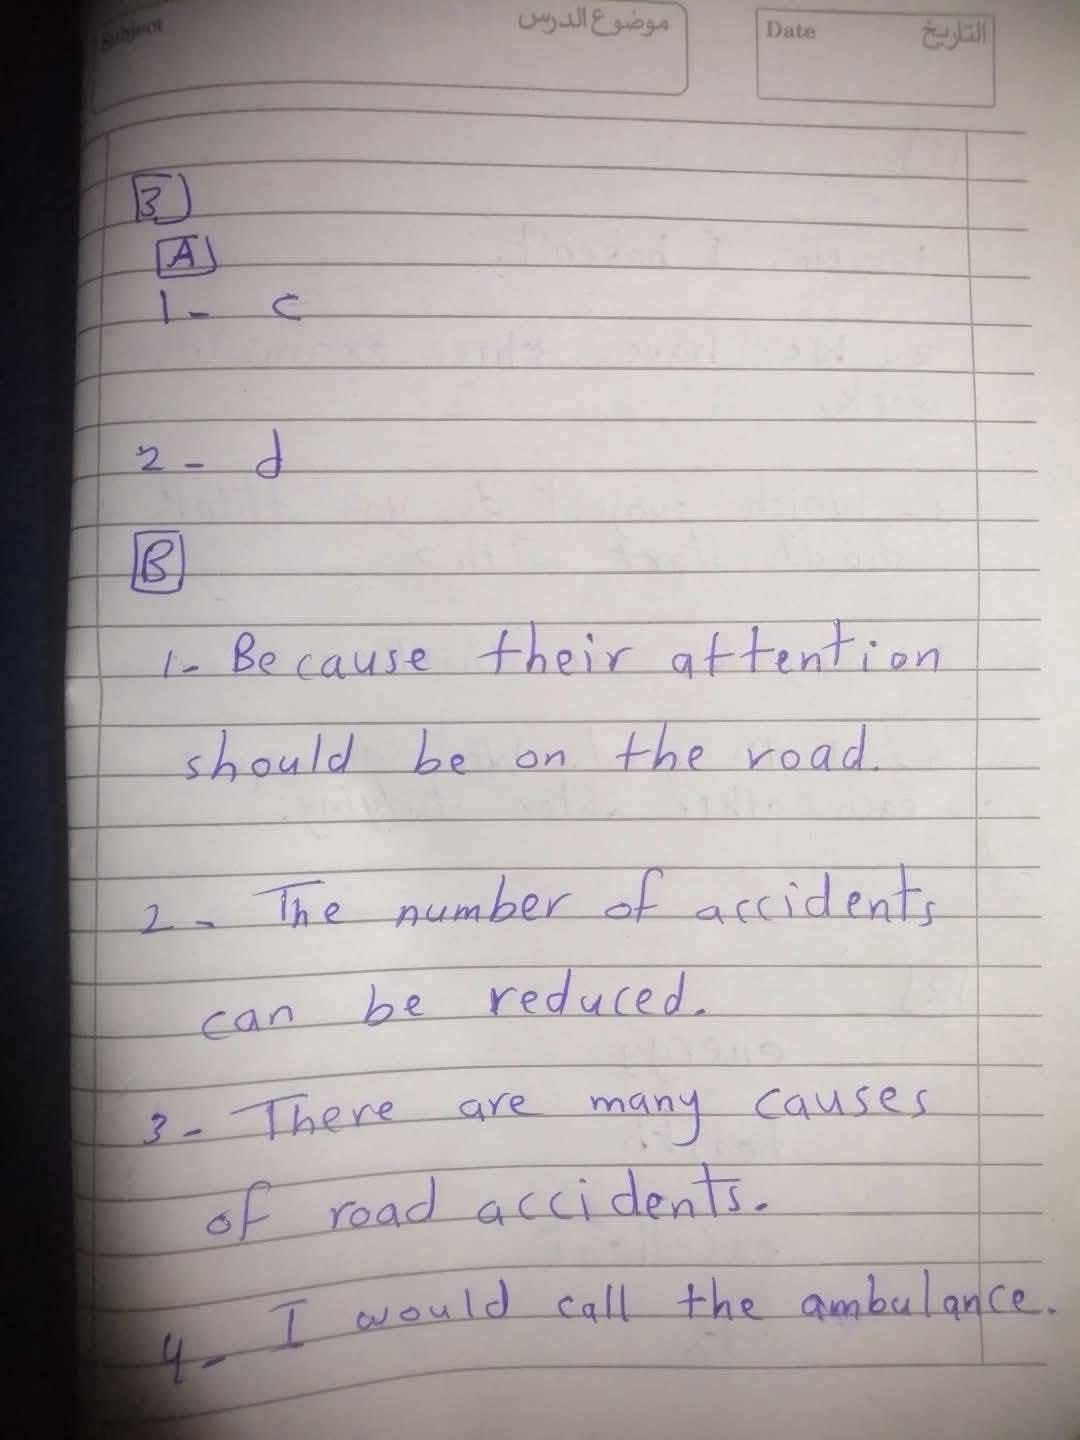 Subject موضوع الدرس
Date التاريخ
3
A
1- c
2- d
B
1- Because their attention
should be on the road.
2- The number of accidents
can be reduced.
3- There are many causes
of road accidents.
4- I would call the ambulance.